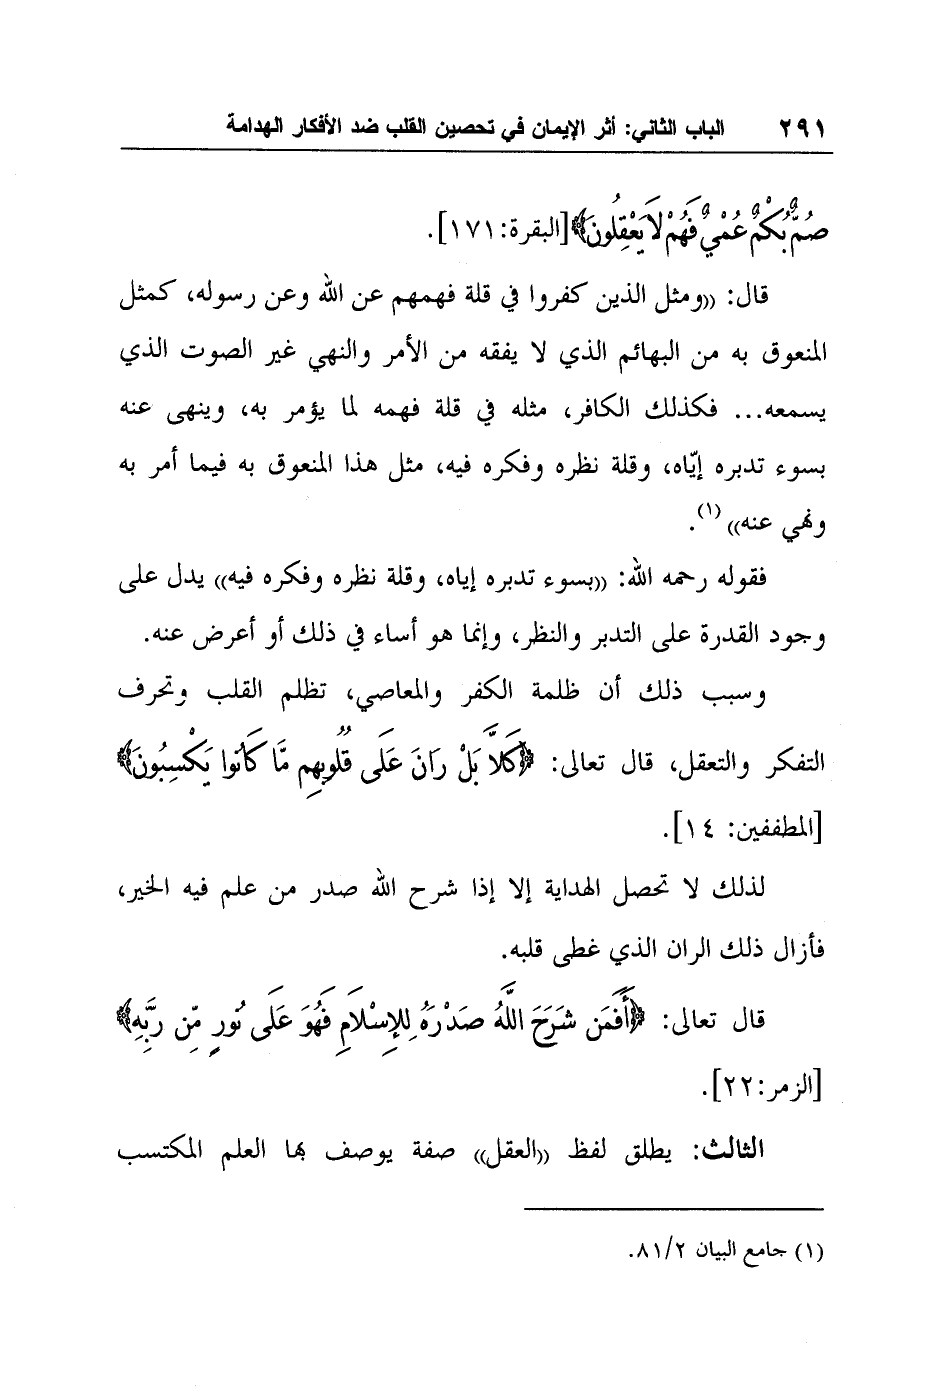 ٢٩١ الباب الثاني: أثر الإيمان في تحصين القلب ضد الأفكار الهدامة
صُمٌّ بُكْمٌ عُمْيٌ فَهُمْ لَا يَعْقِلُونَ﴾[البقرة:١٧١].
قال: ((ومثل الذين كفروا في قلة فهمهم عن الله وعن رسوله، كمثل
المنعوق به من البهائم الذي لا يفقه من الأمر والنهي غير الصوت الذي
يسمعه... فكذلك الكافر، مثله في قلة فهمه لما يؤمر به، وينهى عنه
بسوء تدبره إيّاه، وقلة نظره وفكره فيه، مثل هذا المنعوق به فيما أمر به
ونهي عنه)) (١).
فقوله رحمه الله: ((بسوء تدبره إياه، وقلة نظره وفكره فيه)) يدل على
وجود القدرة على التدبر والنظر، وإنما هو أساء في ذلك أو أعرض عنه.
وسبب ذلك أن ظلمة الكفر والمعاصي، تظلم القلب وتحرف
التفكر والتعقل، قال تعالى: ﴿كَلَّا بَلْ رَانَ عَلَى قُلُوبِهِم مَّا كَانُوا يَكْسِبُونَ﴾
[المطففين: ١٤].
لذلك لا تحصل الهداية إلا إذا شرح الله صدر من علم فيه الخير،
فأزال ذلك الران الذي غطى قلبه.
قال تعالى: ﴿أَفَمَن شَرَحَ اللَّهُ صَدْرَهُ لِلْإِسْلَامِ فَهُوَ عَلَى نُورٍ مِّن رَّبِّهِ﴾
[الزمر:٢٢].
الثالث: يطلق لفظ ((العقل)) صفة يوصف بها العلم المكتسب
(١) جامع البيان ٨١/٢.